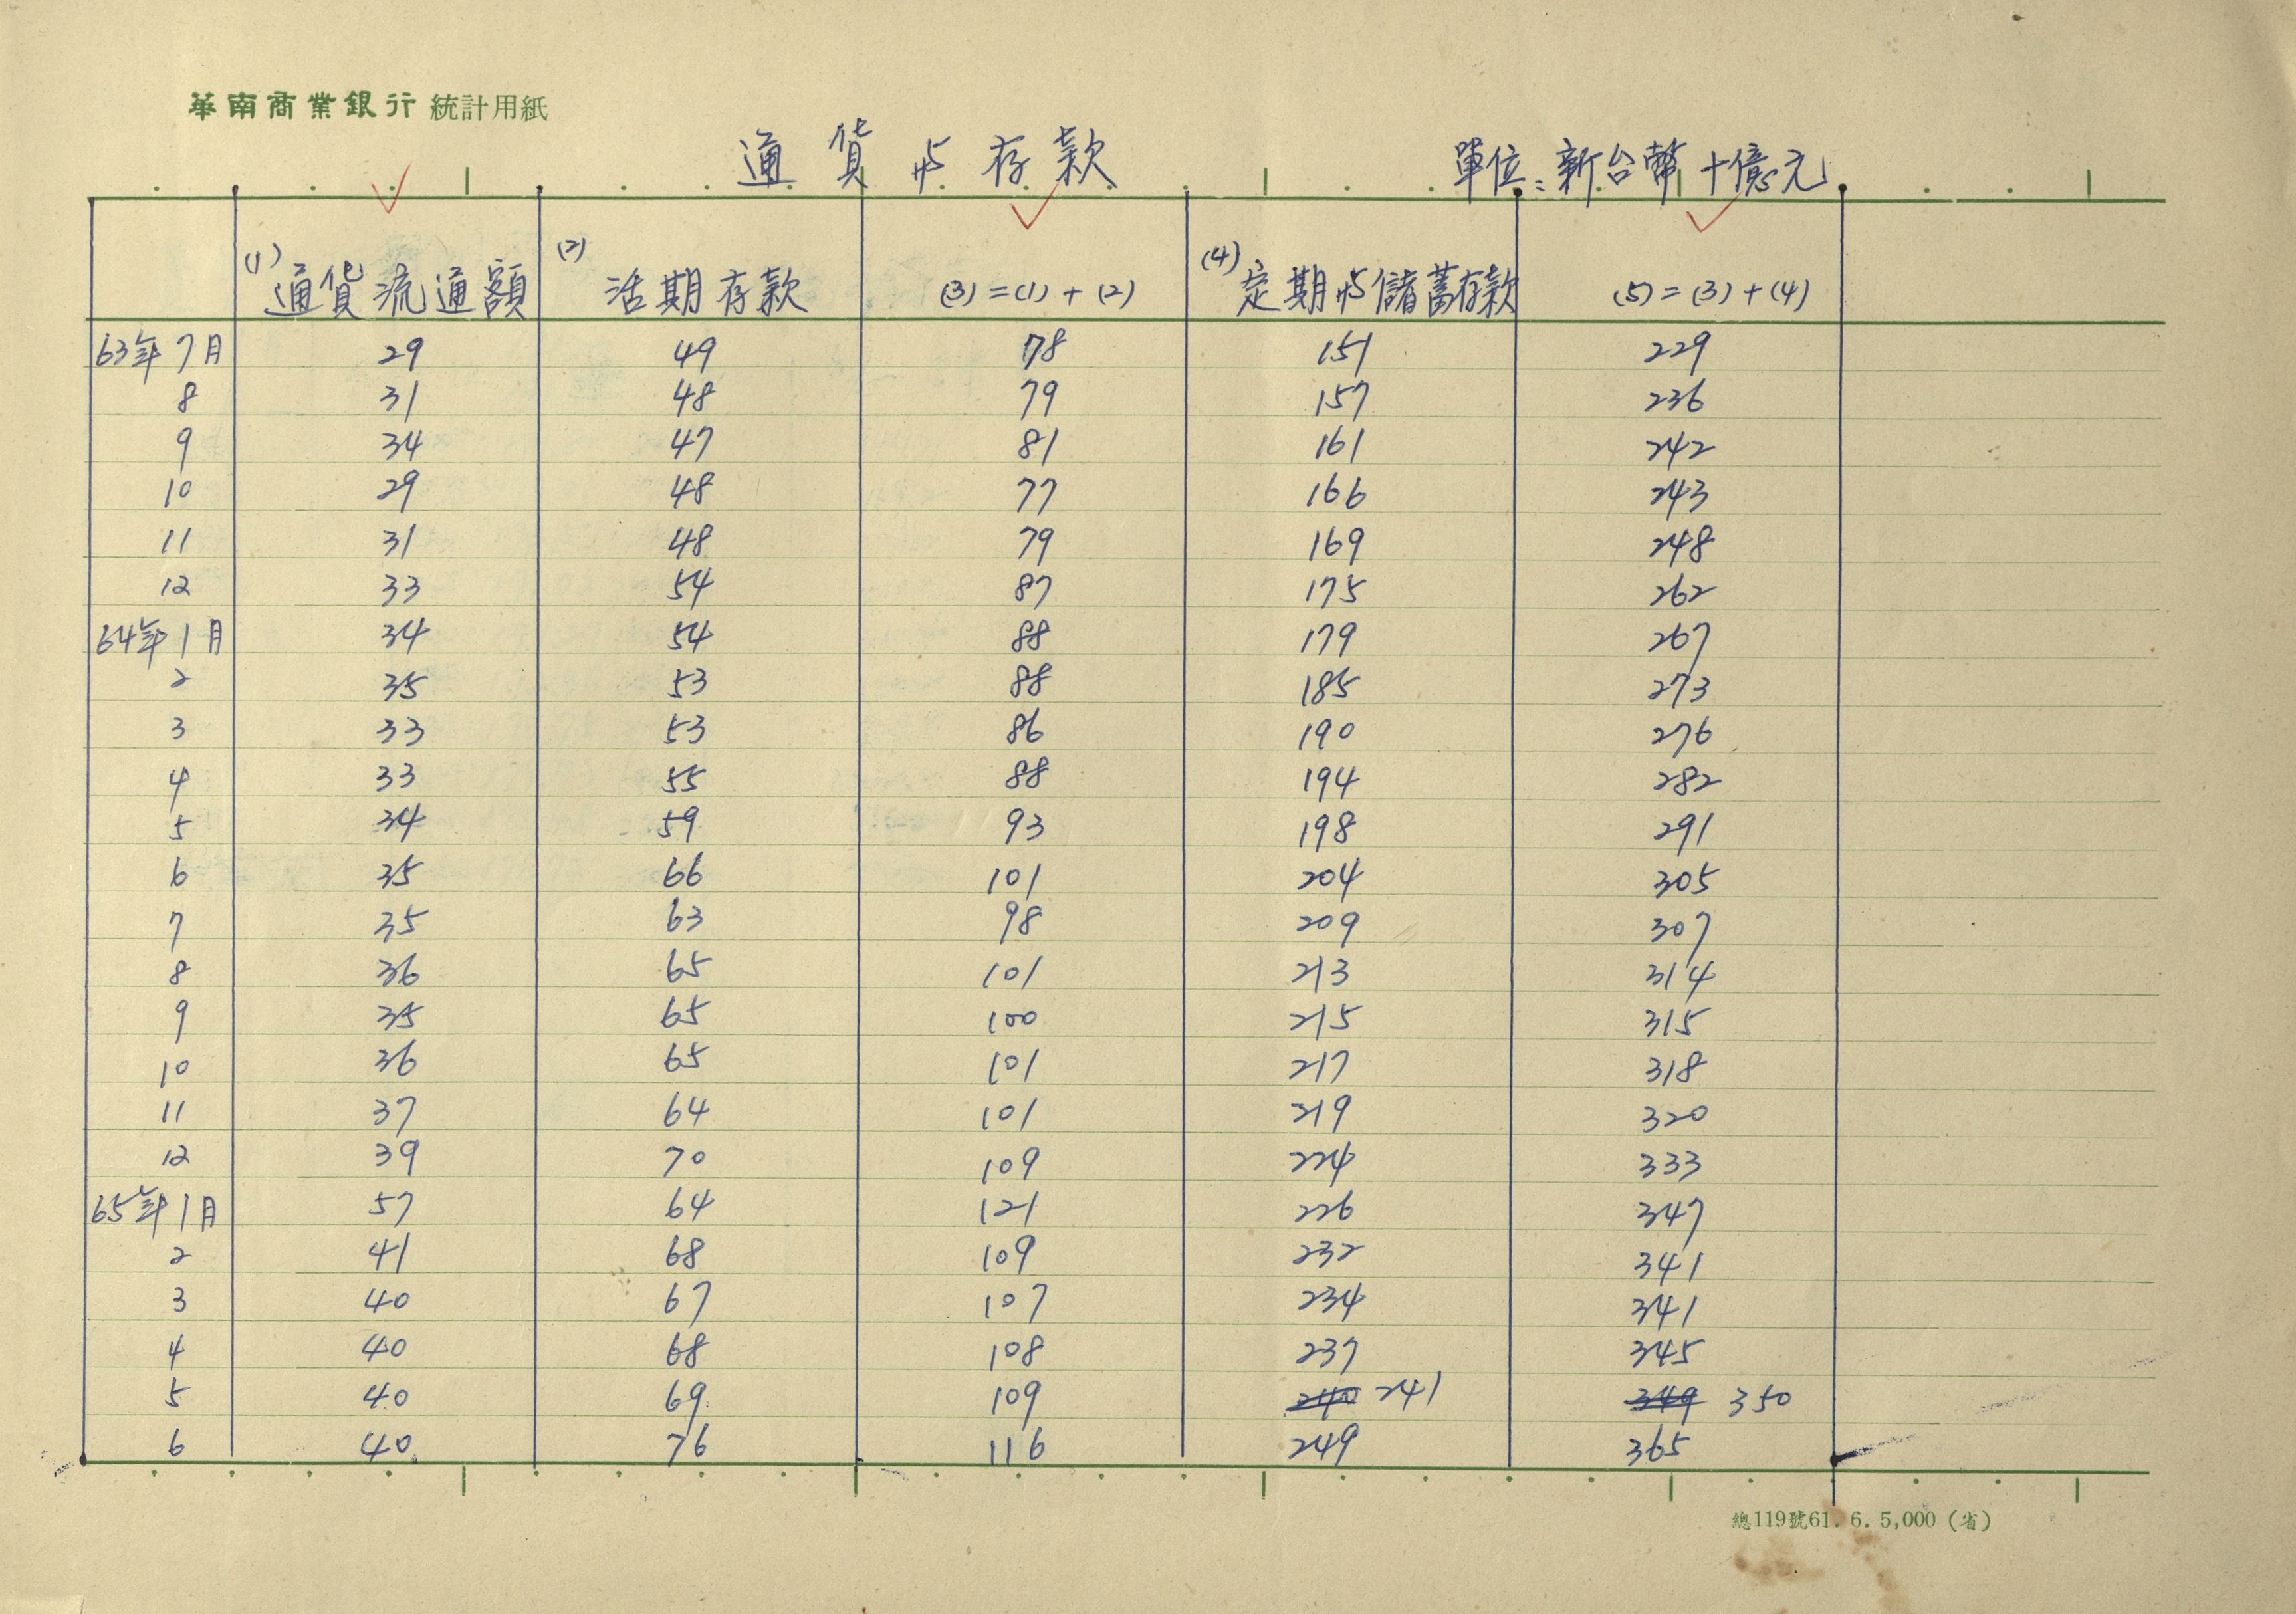 華南商業銀行 統計用紙
通貨与存款 單位:新台幣十億元
(1)通貨流通額 (2)活期存款 (3)=(1)+(2) (4)定期与儲蓄存款 (5)=(3)+(4)
63年7月 29 49 78 151 229
8 31 48 79 157 236
9 34 47 81 161 242
10 29 48 77 166 243
11 31 48 79 169 248
12 33 54 87 175 262
64年1月 34 54 88 179 267
2 35 53 88 185 273
3 33 53 86 190 276
4 33 55 88 194 282
5 34 59 93 198 291
6 35 66 101 204 305
7 35 63 98 209 307
8 36 65 101 213 314
9 35 65 100 215 315
10 36 65 101 217 318
11 37 64 101 219 320
12 39 70 109 224 333
65年1月 57 64 121 226 347
2 41 68 109 232 341
3 40 67 107 234 341
4 40 68 108 237 345
5 40 69 109 240 241 349 350
6 40 76 116 249 365
總119號61.6.5,000(省)